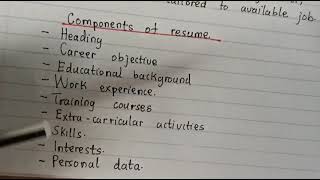 tailored to available job
Components of resume.
- Heading
- Career objective
- Educational background
- Work experience.
- Training courses
- Extra-curricular activities
- Skills.
- Interests.
- Personal data.